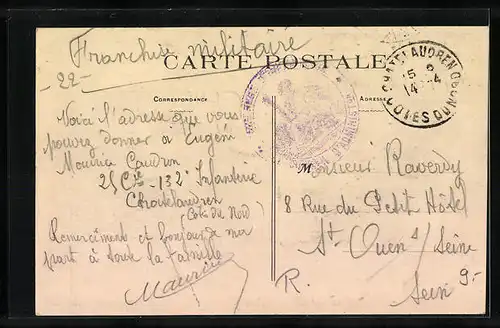 Franchise militaire
CARTE POSTALE
22
CORRESPONDANCE
ADRESSE
CHATELAUDREN
15 14
CÔTES DU NORD
Voici l'adresse que vous
pouvez donner a Eugén
Maurice Caudron
25 Cie 132e Infanterie
Chatelaudren
(Côtes du Nord)
Remerciements et bonjour de ma
part à toute la famille
Maurice
Monsieur Raveroy
8 Rue du Petit Hôtel
St Ouen s/ Seine
Seine
R.
9-